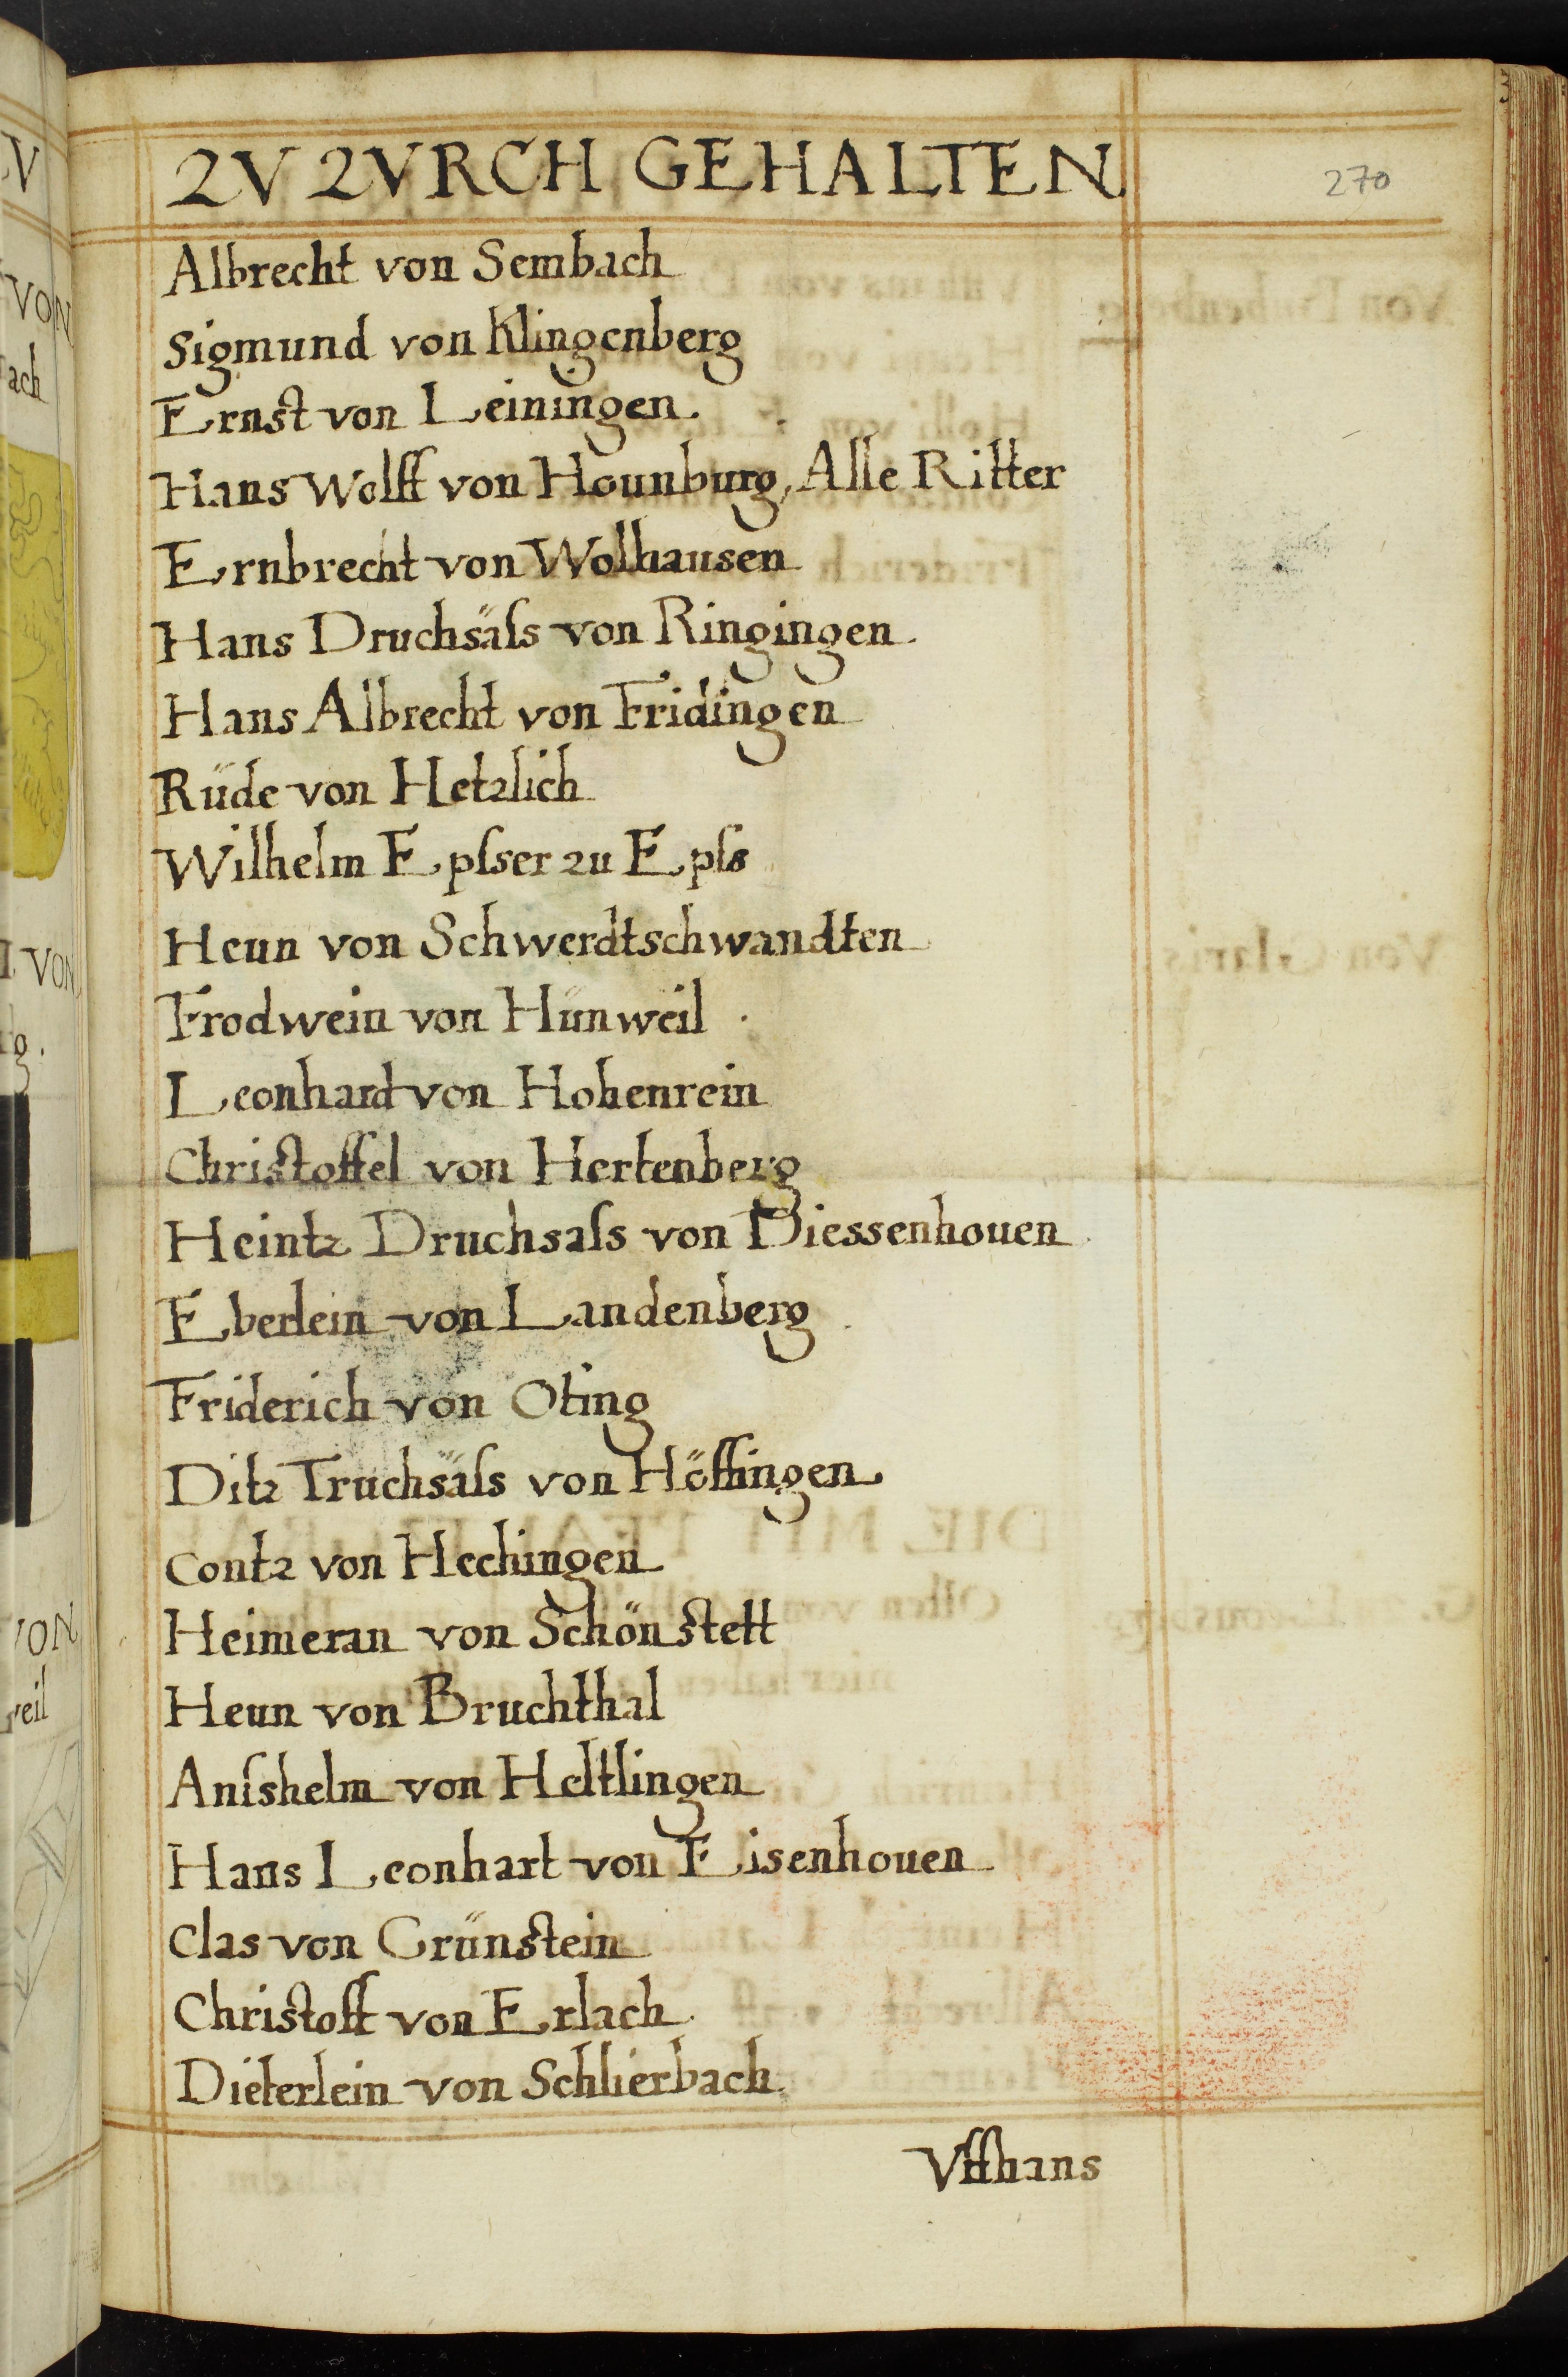 ZV ZVRCH GEHALTEN
270
Albrecht von Sembach
Sigmund von Klingenberg
Ernst von Leiningen.
Hans Wolff von Hounburg, Alle Ritter
Ernbrecht von Wolhausen
Hans Druchsäſs von Ringingen.
Hans Albrecht von Fridingen
Rüde von Hetzlich
Wilhelm Epſser zu Epſs
Heun von Schwerdtschwandten
Frodwein von Hünweil
Leonhard von Hohenrein
Christoffel von Hertenberg
Heintz Druchsaſs von Diessenhouen
Eberlein von Landenberg.
Friderich von Oting
Ditz Truchsäſs von Höffingen
Contz von Hechingen
Heimeran von Schönstett
Heun von Bruchthal
Anſshelm von Hettlingen
Hans Leonhart von Eisenhouen
Clas von Grünstein
Christoff von Erlach.
Dieterlein von Schlierbach.
Vffhans